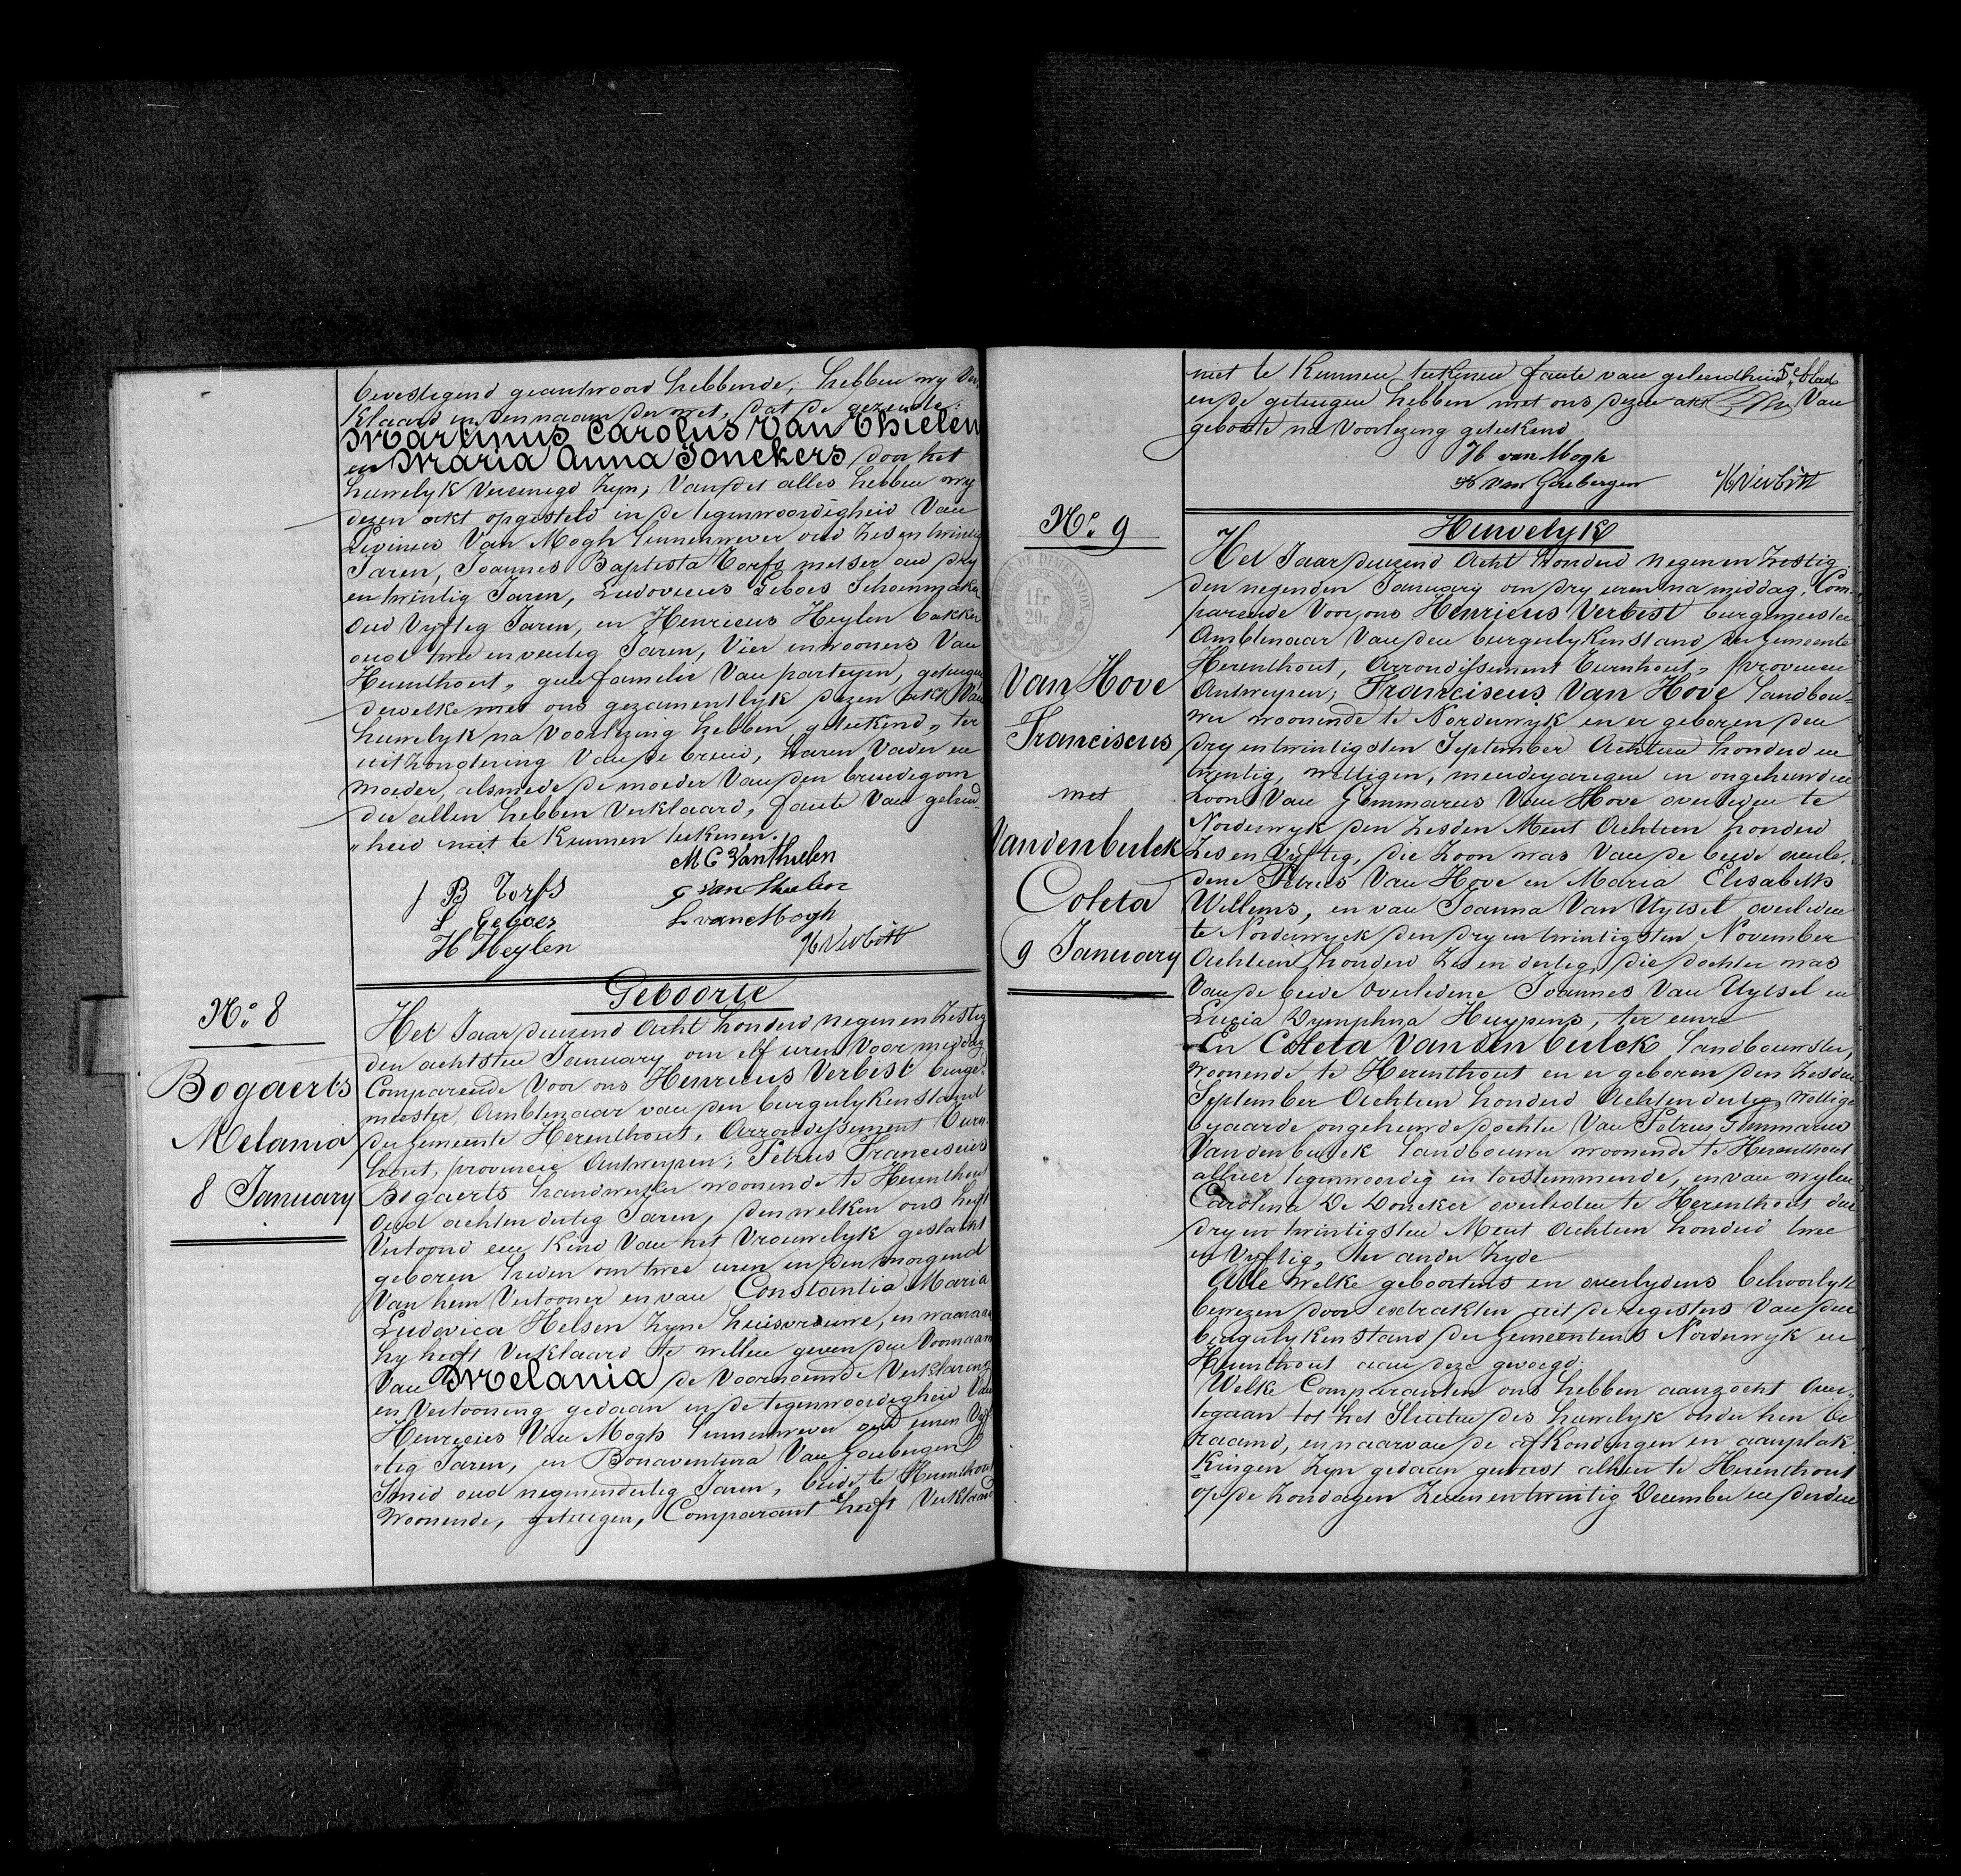 bevestigend geantwoord hebbende, hebben wy ver,
klaard in den naam der wet, dat de gezeide:
Martinus Carolus Van Thielen
en Maria Anna Jonckers door het
huwelyk vereenegd zyn; van dit alles hebben wy
dezen ackt opgesteld in de tegenwoordigheid van
Livinus Van Mogh linnenwever oud zesentwintig
Jaren, Joannes Baptista Torfs metser oud dry
en twintig Jaren, Ludovicus Geboes Schoenmaker
oud vyfteg Jaren, en Henricus Heylen bakker
oud twee en veertig Jaren, vier inwooners van
Herenthout, geene familie van partyen, getuigen
dewelke met ons gezamentlyk dezen ackt van
huwelyk na voorlezing hebben geteekend, ter
uitzondering van de bruid, haren vader en
moeder, alsmede de moeder van den bruidegom
die allen hebben verklaard, faute van geleerd-
"heid niet te kunnen teekenen.
M C Van Thielen
J B Torfs G van Thielen
L Geboes L van Mogh
H Heylen H Verbist
No. 8
Geboorte
Bogaerts
Melania
8 January
Het Jaar duizend acht honderd negen en zestig
den achtsten January om elf uren voormiddag
Compareerde voor ons Henricus Verbist burge-
meester, Ambtenaar van den burgerlyken stand
der gemeente Herenthout, Arrondissement Turn-
hout, provincie Antwerpen; Petrus Franciscus
Bogaerts handwerker woonende te Herenthout
oud achtendertig Jaren, denwelken ons heeft
vertoond een kind van het vrouwelyk geslacht
geboren heden om twee uren in den morgend
van hem vertooner en van Constantia Maria
Ludovica Helsen zyne huisvrouwe, en waaraan
hy heeft verklaard te willen geven den voornaam
van Melania de voornoemde verklaring
en vertooning gedaan in de tegenwoordigheid van
Henricus Van Mogh linnenwever oud eenen vyf
"tig Jaren, en Bonaventura Van Goubergen
Smid oud negenendertig Jaren, beide te Herenthout
woonende, getuigen, Comparant heeft verklaard
5e blad
niet te kunnen teekenen faute van geleerdheid,
en de getuigen hebben met ons dezen akt van
geboorte na voorlezing geteekend
H van Mogh
B Van Goubergen H Verbist
No. 9
Huwelyk
TIMBRE DE DIMENSION
1fr
20c
Van Hove
Franciscus
met
Vandenbulck
Coleta
9 January
Het Jaar duizend Acht honderd negen en zestig
den negenden January om dry uren namiddag, Com-
pareerde voor ons Henricus Verbist burgemeester
Ambtenaar van den burgerlyken stand der gemeente
Herenthout, Arrondissement Turnhout, provincie
Antwerpen; Franciscus Van Hove landbou-
wer woonende te Norderwyk en er geboren den
dryentwintigsten September Achttien honderd en
twintig, wettigen, meerderjarigen en ongehuwden
zoon van Gommarus Van Hove overleden te
Norderwyk den zesden Meert Achttien honderd
zes en vyftig, die zoon was van de beide overle-
dene Petrus Van Hove en Maria Elisabeth
Willems, en van Joanna Van Uytsel overleden
te Norderwyck den dryentwintigsten November
Achttien honderd zes en dertig, die dochter was
van de beide overledene Joannes Van Uytsel en
Lucia Dymphna Huypens, ter eenre
En Coleta Vandenbulck landbouwster,
woonende te Herenthout en er geboren den zesden
September Achttien honderd Achtendertig, wettige
bejaarde ongehuwde dochter van Petrus Gommarus
Vandenbulck landbouwer woonende te Herenthout
alhier tegenwoordig en toestemmende, en van wylen
Carolina De Doncker overleden te Herenthout den
dryen twintigsten Meert Achttien honderd twee
en vyftig, ter ander zyde
Alle welke geboortens en overlydens behoorlyk
bewezen door extrakten uit de registers van den
burgerlyken stand der gemeentens Norderwyk en
Herenthout aan deze gevoegd.
Welke Comparanten ons hebben aanzocht over-
tegaan tot het sluiten des huwelyk onder hen be
raamd, en naarvan de afkondingen en aanplak-
kingen zyn gedaan geweest alhier te Herenthout
op de zondagen zevenentwintig December en derden